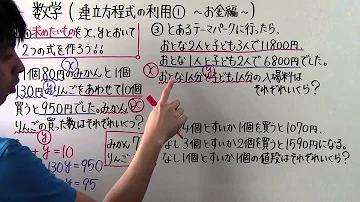 数学(連立方程式の利用① ～お金編～)
求めたいものをx,yとおいて
2つの式を作ろう!!
1個80円のみかんと1個
130円のりんごをあわせて10個
買うと950円でした。みかんと
りんごの買った数はそれぞれいくつ?
x
y
+ y = 10
130y = 950
y = 95
みかん7
りんご
③とあるテーマパークに行ったら、
おとな2人と子ども3人で11800円、
おとな1人と子ども2人で6800円でした。
x
y
おとな1人分と子ども1人分の入場料は
それぞれいくら?
4個とすいか1個を買うと1070円、
なし3個とすいか2個を買うと1590円になる。
なし1個とすいか1個の値段はそれぞれいくら?